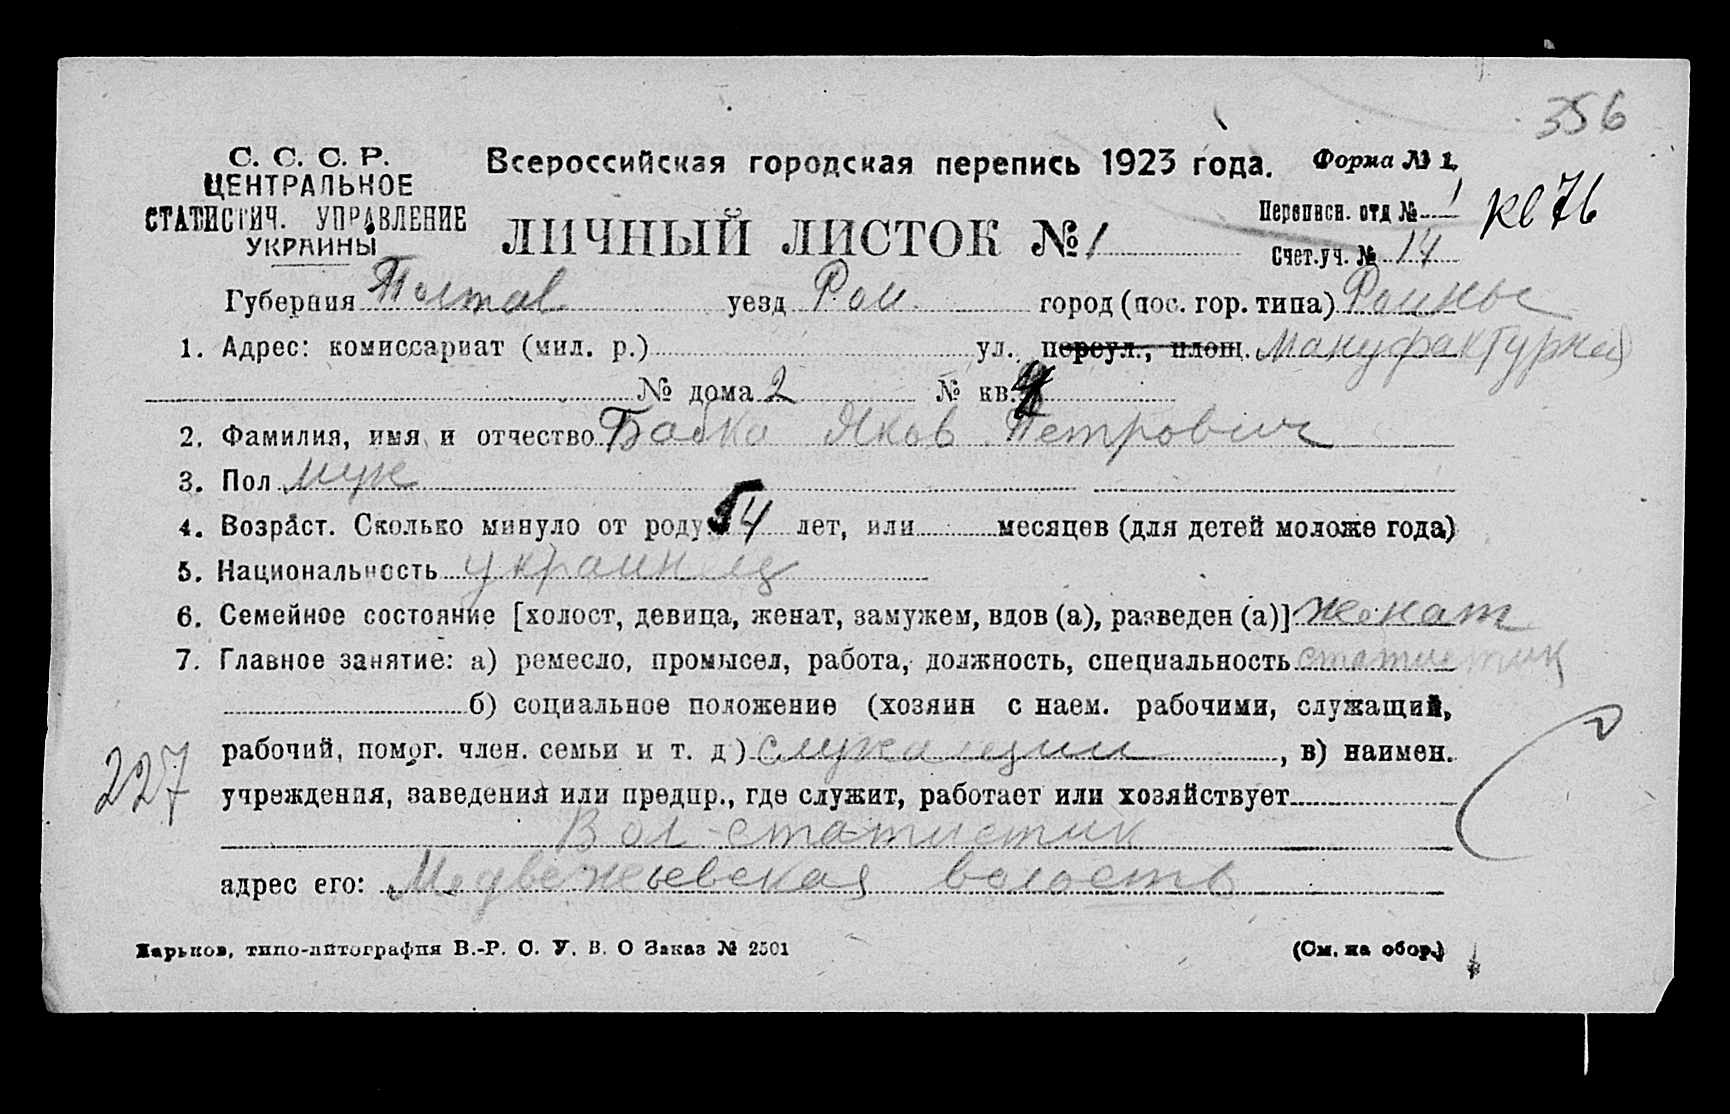 356
С. С. С. Р.
ЦЕНТРАЛЬНОЕ
СТАТИСТИЧ. УПРАВЛЕНИЕ
УКРАИНЫ
Всероссийская городская перепись 1923 года.
Форма № 1.
ЛИЧНЫЙ ЛИСТОК № 1
Переписн. отд № 1
Счет.уч. № 14
кв 76
Губерния Полтав уезд Ром город (пос. гор. типа) Ромны
1. Адрес: комиссариат (мил. р.) ул., переул., площ. Мануфактурная
№ дома 2 № кв.
2. Фамилия, имя и отчество Бабка Яков Петрович
3. Пол муж
4. Возраст. Сколько минуло от роду 54 лет, или месяцев (для детей моложе года)
5. Национальность украинец
6. Семейное состояние [холост, девица, женат, замужем, вдов (а), разведен (а)] женат
7. Главное занятие: а) ремесло, промысел, работа, должность, специальность статистик
б) социальное положение (хозяин с наем. рабочими, служащий,
рабочий, помог. член. семьи и т. д) служащий, в) наимен.
227
учреждения, заведения или предпр., где служит, работает или хозяйствует
Вол-статистик
адрес его: Медвежьевская волость
Харьков, типо-литография В.-Р. С. У. В. О Заказ № 2501
(См. на обор.)